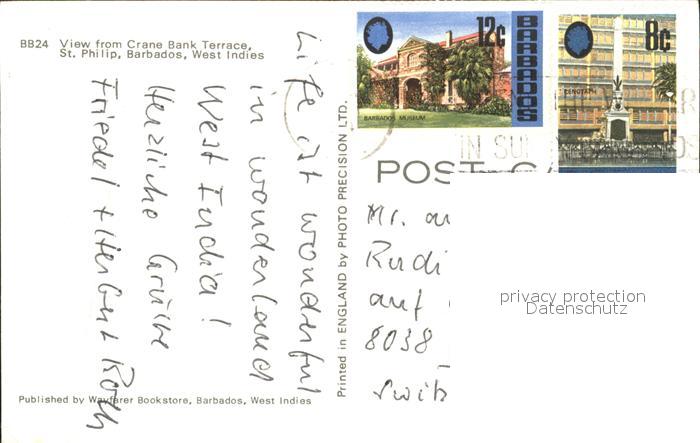 BB24 View from Crane Bank Terrace,
St. Philip, Barbados, West Indies
Life ist wonderful
in wonderland
West India!
Herzliche Grüße
Friedel + Herbert Roth
Published by Wayfarer Bookstore, Barbados, West Indies
Printed in ENGLAND by PHOTO PRECISION LTD.
12c
BARBADOS
BARBADOS MUSEUM
8c
CENOTAPH
IN SU
POST CA
Mr. a
Rudi
auf
8038
Switz
privacy protection
Datenschutz